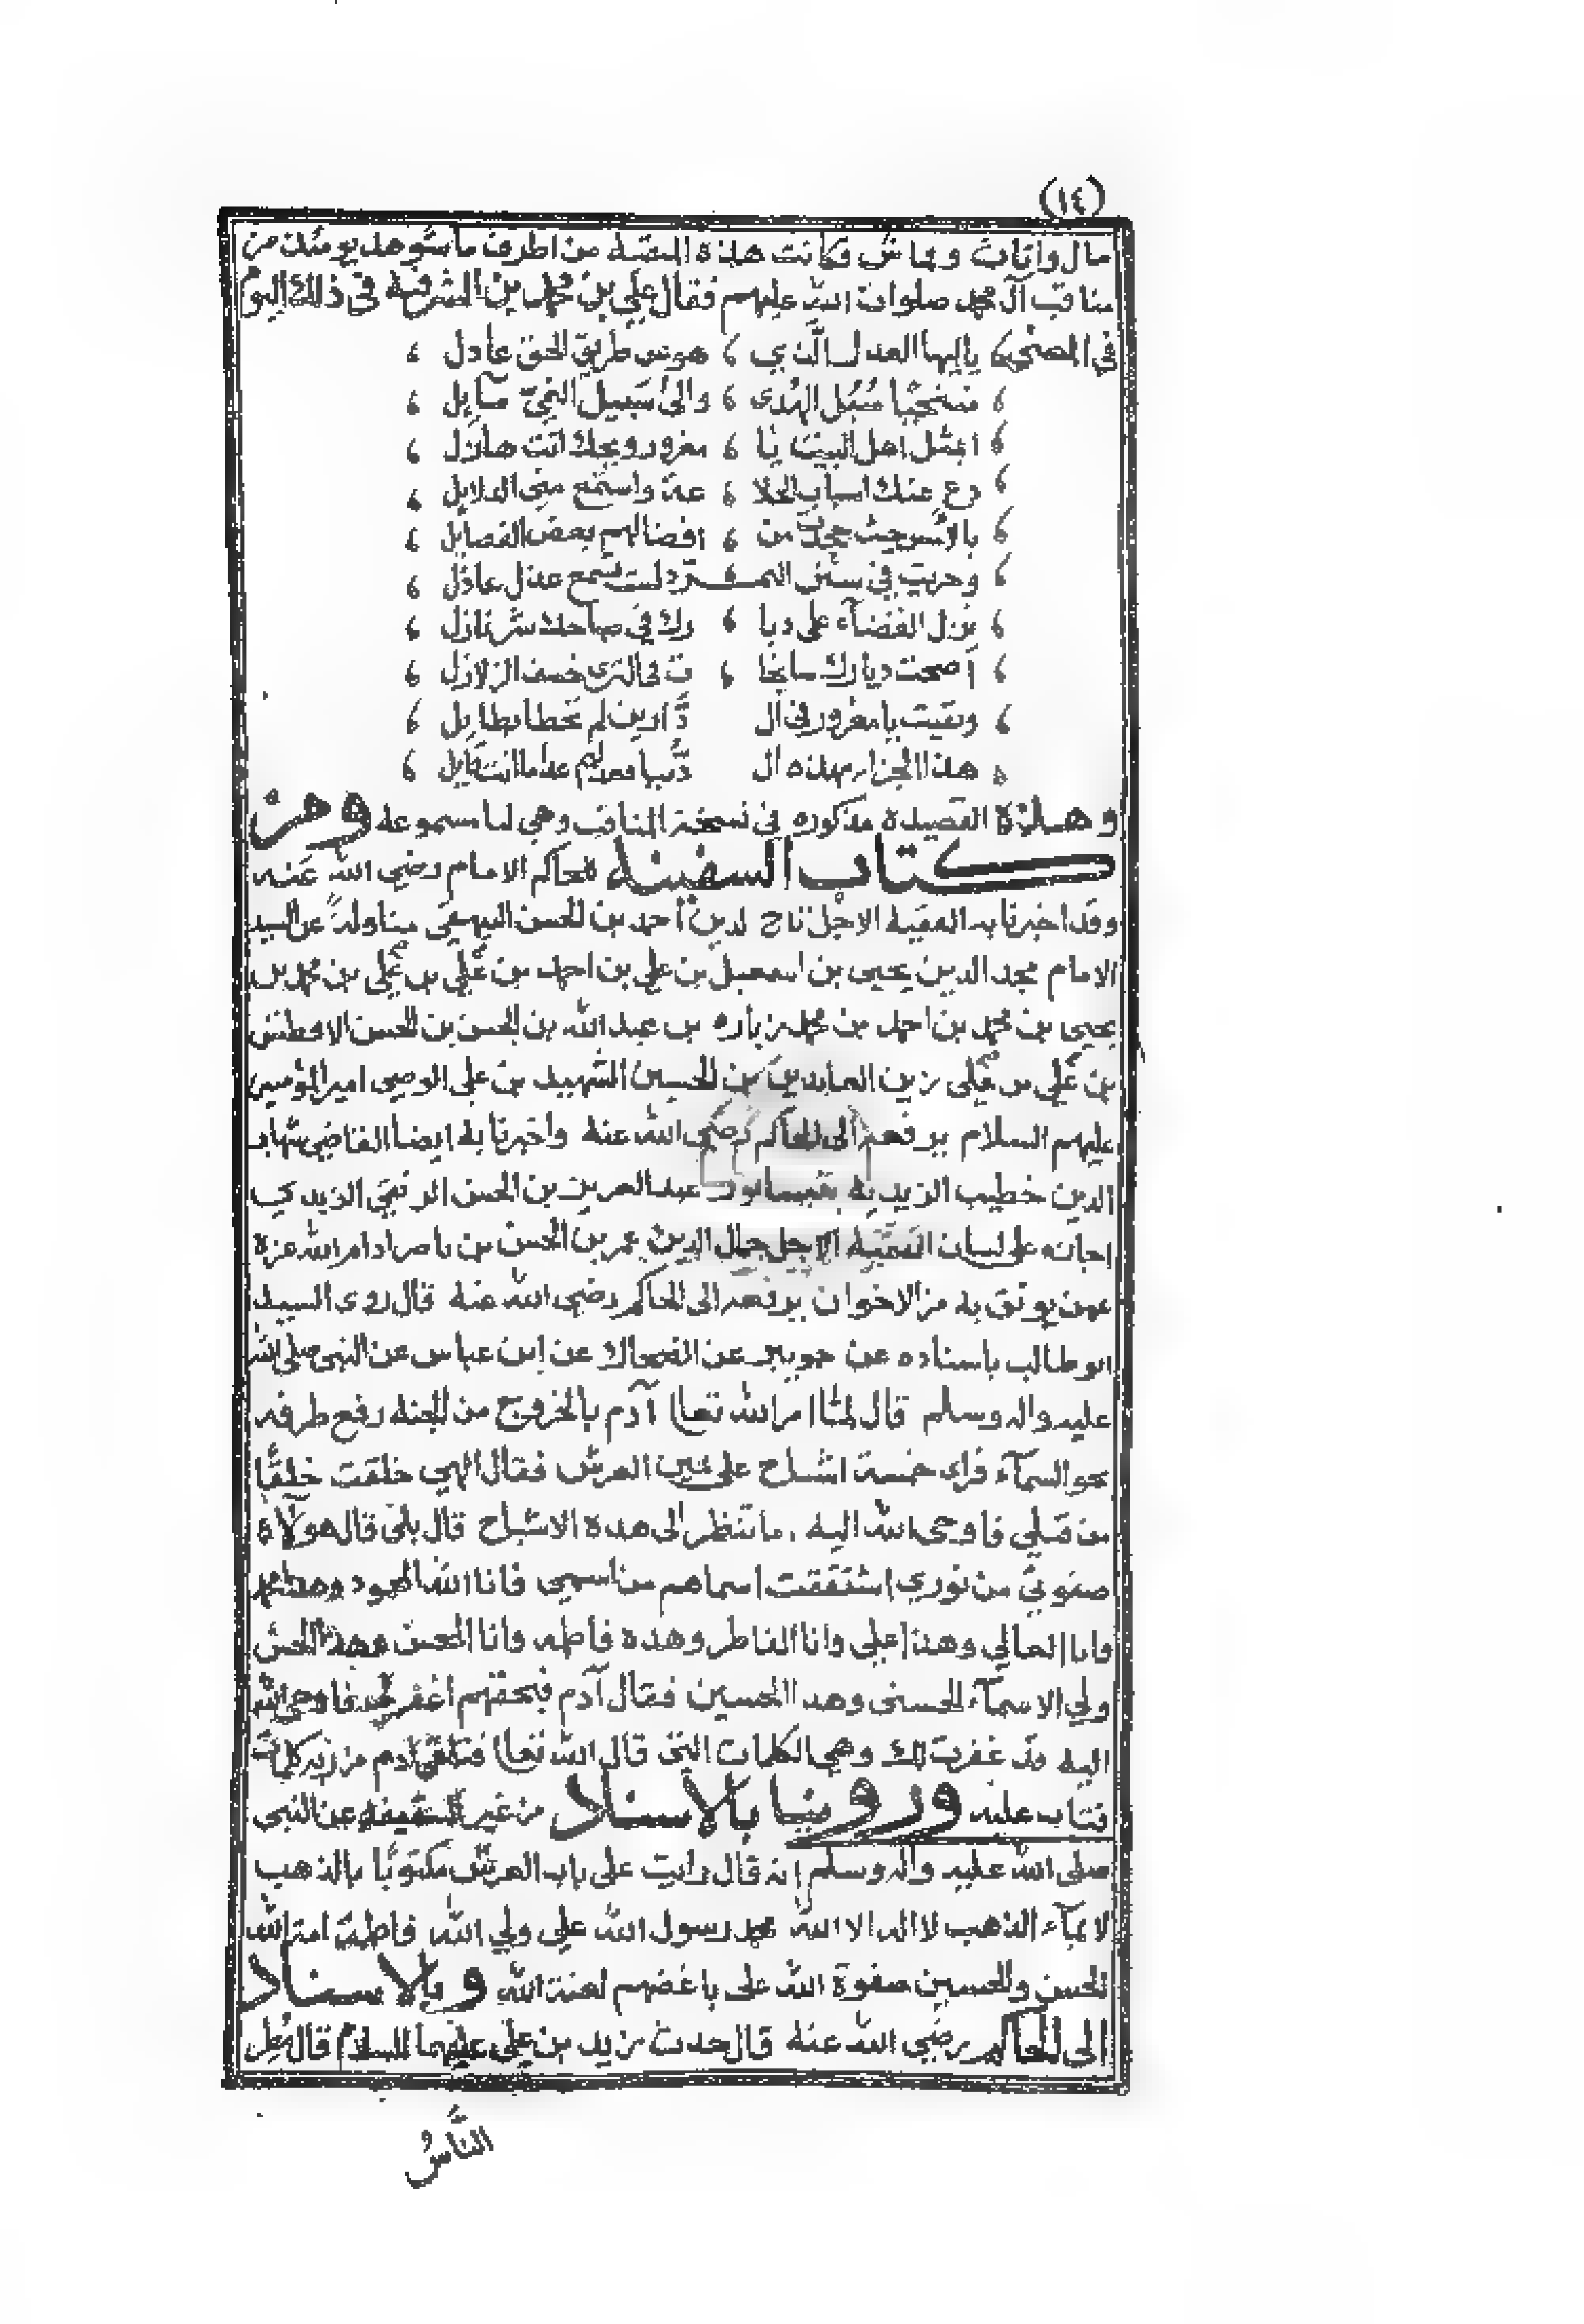 (١٤)
مال واثاث وقماش وكانت هذه القصة من اطرف ما شوهد يومئذ من
مناقب آل محمد صلوات الله عليهم فقال علي بن محمد بن الشرفية في ذلك اليوم
في المصني يا ايها العدل الذي هو عن طريق الحق عادل
متجنبا سبل الهدى والى سبيل الغي مايل
ابمثل اهل البيت يا مغرور ويحك انت هازل
دع عنك اسباب الخلا عة واستمع مني الدلايل
بالامس حيث جحدت من افضالهم بعض الفضايل
وجريت في سنن التمرد لست تسمع عذل عاذل
نزل القضآء على ديا رك في صباحك شر نازل
اضحت ديارك سايخا ت في الثرى خسف الزلازل
وبقيت يا مغرور في ال دارين لم تحظ بطايل
هذا الجزاء بهذه ال دنيا فعد ما انت قايل
وهذه القصيدة مذكوره في نسخة المناقب وهي لنا مسموعه ومن
كتاب السفينه للحاكم الامام رضي الله عنه
وقد اخبرنا به الفقيه الاجل تاج الدين احمد بن الحسن البيهقي مناولة عن السيد
الامام مجد الدين يحيى بن اسمعيل بن علي بن احمد بن علي بن محمد بن
يحيى بن محمد بن احمد بن محمد زباره بن عبد الله بن الحسن بن الحسن الافطس
بن علي بن علي زين العابدين بن الحسين الشهيد بن علي الوصي امير المؤمنين
عليهم السلام يرفعه الى الحاكم رضي الله عنه واخبرنا به ايضا القاضي شهاب
الدين خطيب الزيدية بقيسابور عبد العزيز بن الحسن الزيدي
اجازة على لسان الفقيه الاجل جمال الدين عمر بن الحسن بن ناصر ادام الله عزه
عمن يوثق به من الاخوان يرفعه الى الحاكم رضي الله عنه قال روى السيد
ابو طالب باسناده عن جويبر عن الضحاك عن ابن عباس عن النبي صلى الله
عليه واله وسلم قال لما امر الله تعالى آدم بالخروج من الجنه رفع طرفه
نحو السمآء فراى خمسة اشباح على يمين العرش فقال الهي خلقت خلقا
من قبلي فاوحى الله اليه ما تنظر الى هذه الاشباح قال بلى قال هولآء
صفوتي من نوري اشتققت اسماهم من اسمي فانا الله المحمود وهذا محمد
وانا العالي وهذا علي وانا الفاطر وهذه فاطمه وانا المحسن وهذا الحسن
ولي الاسمآء الحسنى وهذا الحسين فقال آدم فبحقهم اغفر لي فاوحى الله
اليه قد غفرت لك وهي الكلمات التي قال الله تعالى فتلقى آدم من ربه كلمات
فتاب عليه وروينا بالاسناد من غير السفينه عن النبي
صلى الله عليه واله وسلم انه قال رايت على باب العرش مكتوبا بالذهب
لا بمآء الذهب لا اله الا الله محمد رسول الله علي ولي الله فاطمة امة الله
الحسن والحسين صفوة الله على باغضهم لعنة الله وبالاسناد
الى الحاكم رضي الله عنه قال حدث زيد بن علي عليهما السلام قال
الناس